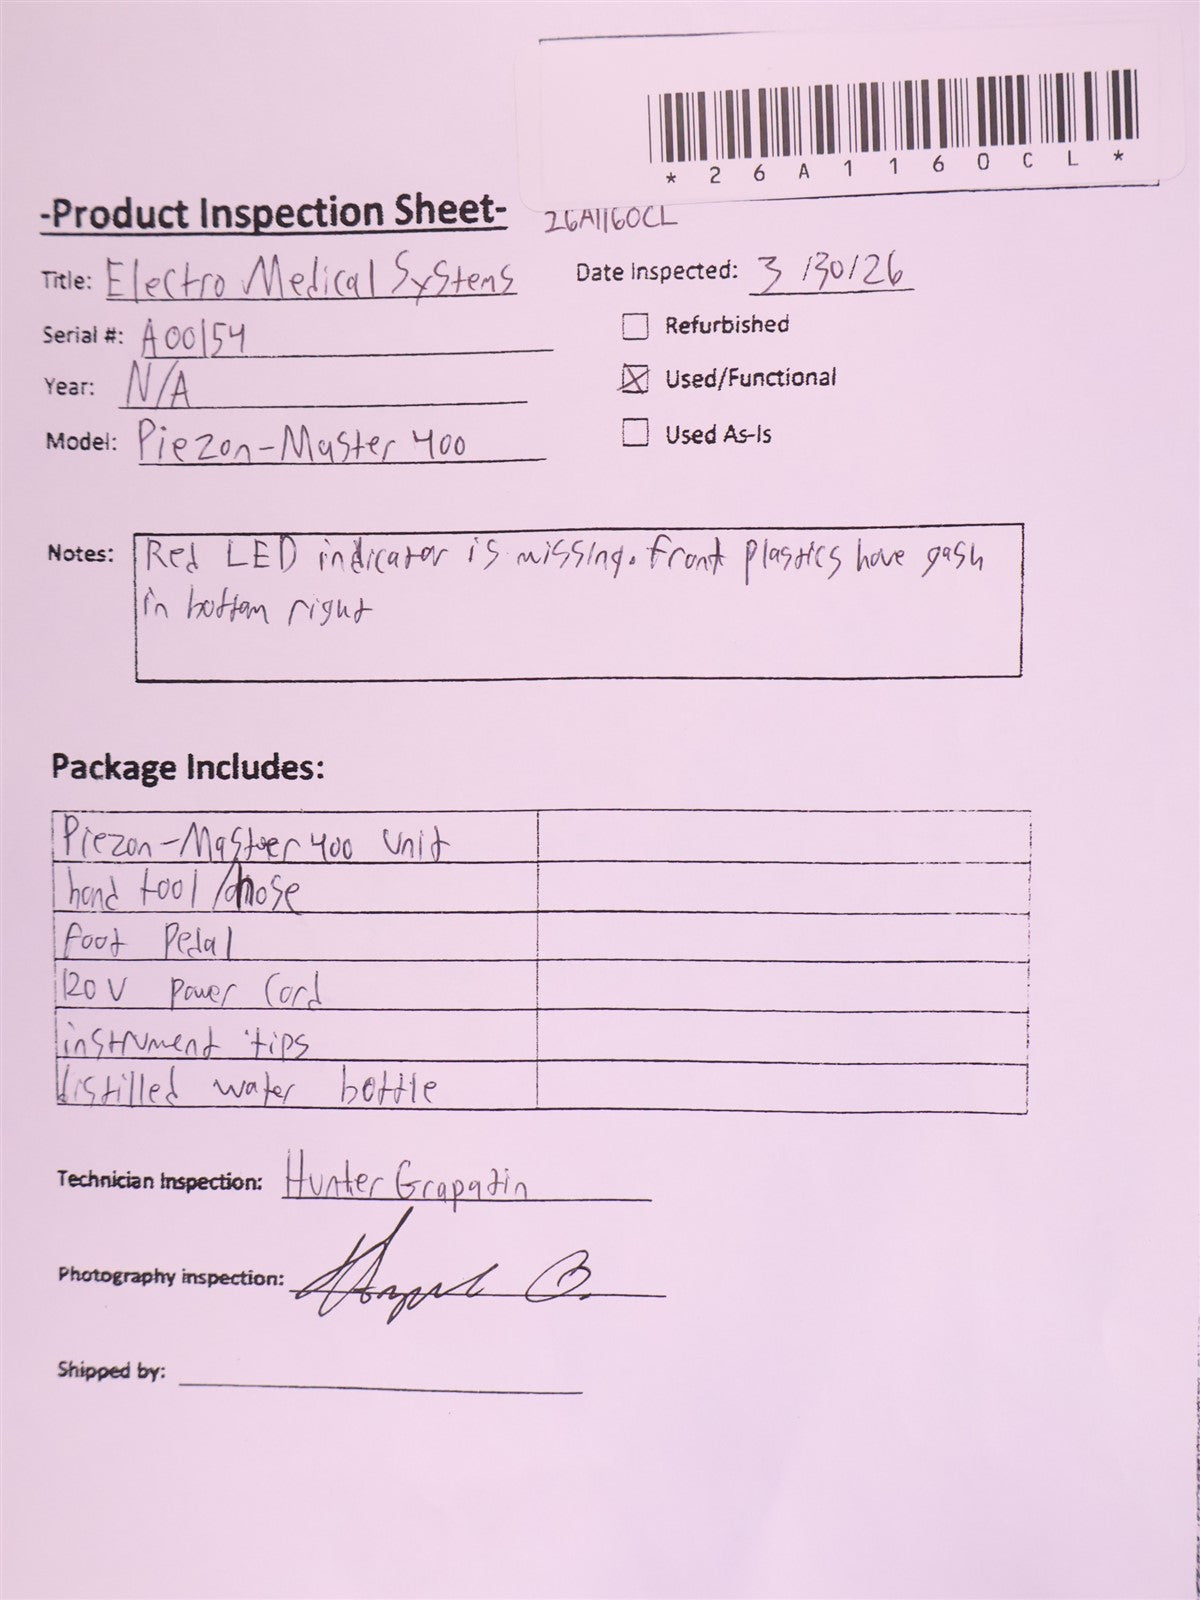 *26A1160CL*
-Product Inspection Sheet- 26A1160CL
Title: Electro Medical Systems Date Inspected: 3/30/26
Serial #: A00154 Refurbished
Year: N/A Used/Functional
Model: Piezon-Master 400 Used As-Is
Notes: Red LED indicator is missing. Front plastics have gash
in bottom right
Package Includes:
Piezon-Master 400 Unit
hand tool/hose
Foot Pedal
120V power Cord
instrument tips
distilled water bottle
Technician Inspection: Hunter Grapatin
Photography inspection:
Shipped by: